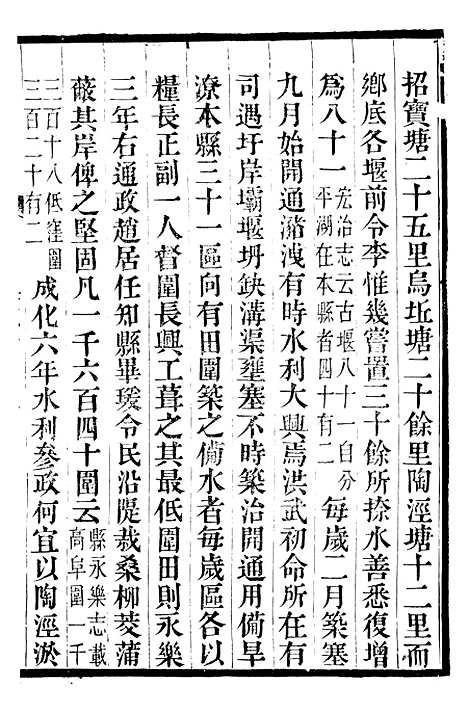 招寳塘二十五里烏坵塘二十餘里陶涇塘十二里而
鄉底各堰前令李惟幾嘗置三十餘所捺水善悉復增
爲八十一宏治志云古堰八十一自分
平湖在本縣者四十有二每歲二月築塞
九月始開通瀦洩有時水利大興焉洪武初命所在有
司遇圩岸壩堰坍缺溝渠壅塞不時築治開通用備旱
潦本縣三十一區向有田圍築之備水者每歲區各以
糧長正副一人督圍長興工葺之其最低圍田則永樂
三年右通政趙居任知縣畢瑗令民沿隄栽桑柳茭蒲
蔽其岸俾之堅固凡一千六百四十圍云縣永樂志載
高阜圍一千
三百十八低窪圍
三百二十有二成化六年水利參政何宜以陶涇淤